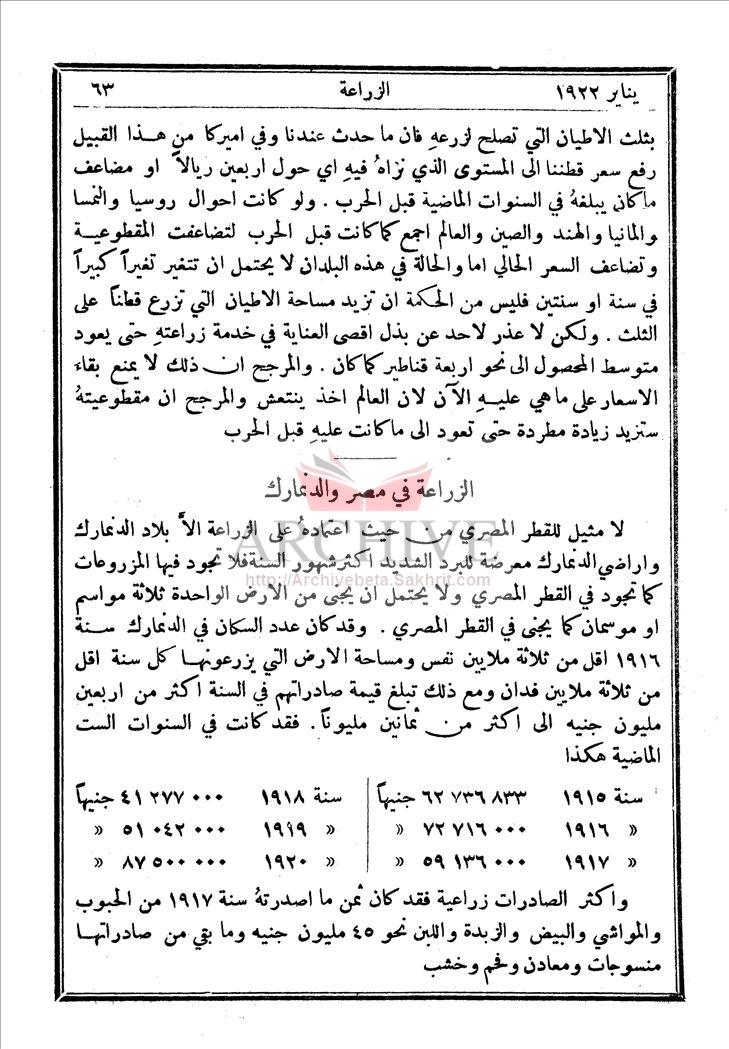 يناير ١٩٢٢ الزراعة ٦٣
بثلث الاطيان التي تصلح لزرعهِ فان ما حدث عندنا وفي اميركا من هذا القبيل
رفع سعر قطننا الى المستوى الذي نراهُ فيهِ اي حول اربعين ريالاً او مضاعف
ماكان يبلغهُ في السنوات الماضية قبل الحرب . ولو كانت احوال روسيا والنمسا
والمانيا والهند والصين والعالم اجمع كما كانت قبل الحرب لتضاعفت المقطوعية
وتضاعف السعر الحالي اما والحالة في هذه البلدان لا يحتمل ان تتغير تغيراً كبيراً
في سنة او سنتين فليس من الحكمة ان تزيد مساحة الاطيان التي تزرع قطناً على
الثلث . ولكن لا عذر لاحد عن بذل اقصى العناية في خدمة زراعتهِ حتى يعود
متوسط المحصول الى نحو اربعة قناطير كما كان . والمرجح ان ذلك لا يمنع بقاء
الاسعار على ما هي عليهِ الآن لان العالم اخذ ينتعش والمرجح ان مقطوعيتهُ
ستزيد زيادة مطردة حتى تعود الى ما كانت عليهِ قبل الحرب
الزراعة في مصر والدنمارك
لا مثيل للقطر المصري من حيث اعتمادهُ على الزراعة الاَّ بلاد الدنمارك
واراضي الدنمارك معرضة للبرد الشديد اكثر شهور السنة فلا تجود فيها المزروعات
كما تجود في القطر المصري ولا يحتمل ان يجنى من الارض الواحدة ثلاثة مواسم
او موسمان كما يجنى في القطر المصري . وقد كان عدد السكان في الدنمارك سنة
١٩١٦ اقل من ثلاثة ملايين نفس ومساحة الارض التي يزرعونها كل سنة اقل
من ثلاثة ملايين فدان ومع ذلك تبلغ قيمة صادراتهم في السنة اكثر من اربعين
مليون جنيه الى اكثر من ثمانين مليوناً . فقد كانت في السنوات الست
الماضية هكذا
سنة ١٩١٥ ٦٢ ٧٣٦ ٨٣٣ جنيهاً سنة ١٩١٨ ٤١ ٢٧٧ ٠٠٠ جنيهاً
« ١٩١٦ ٧٢ ٧١٦ ٠٠٠ « « ١٩١٩ ٥١ ٠٤٢ ٠٠٠ «
« ١٩١٧ ٥٩ ١٣٦ ٠٠٠ « « ١٩٢٠ ٨٧ ٥٠٠ ٠٠٠ «
واكثر الصادرات زراعية فقد كان ثمن ما اصدرتهُ سنة ١٩١٧ من الحبوب
والمواشي والبيض والزبدة واللبن نحو ٤٥ مليون جنيه وما بقي من صادراتها
منسوجات ومعادن وفحم وخشب
ARCHIVE
http://Archivebeta.Sakhrit.com